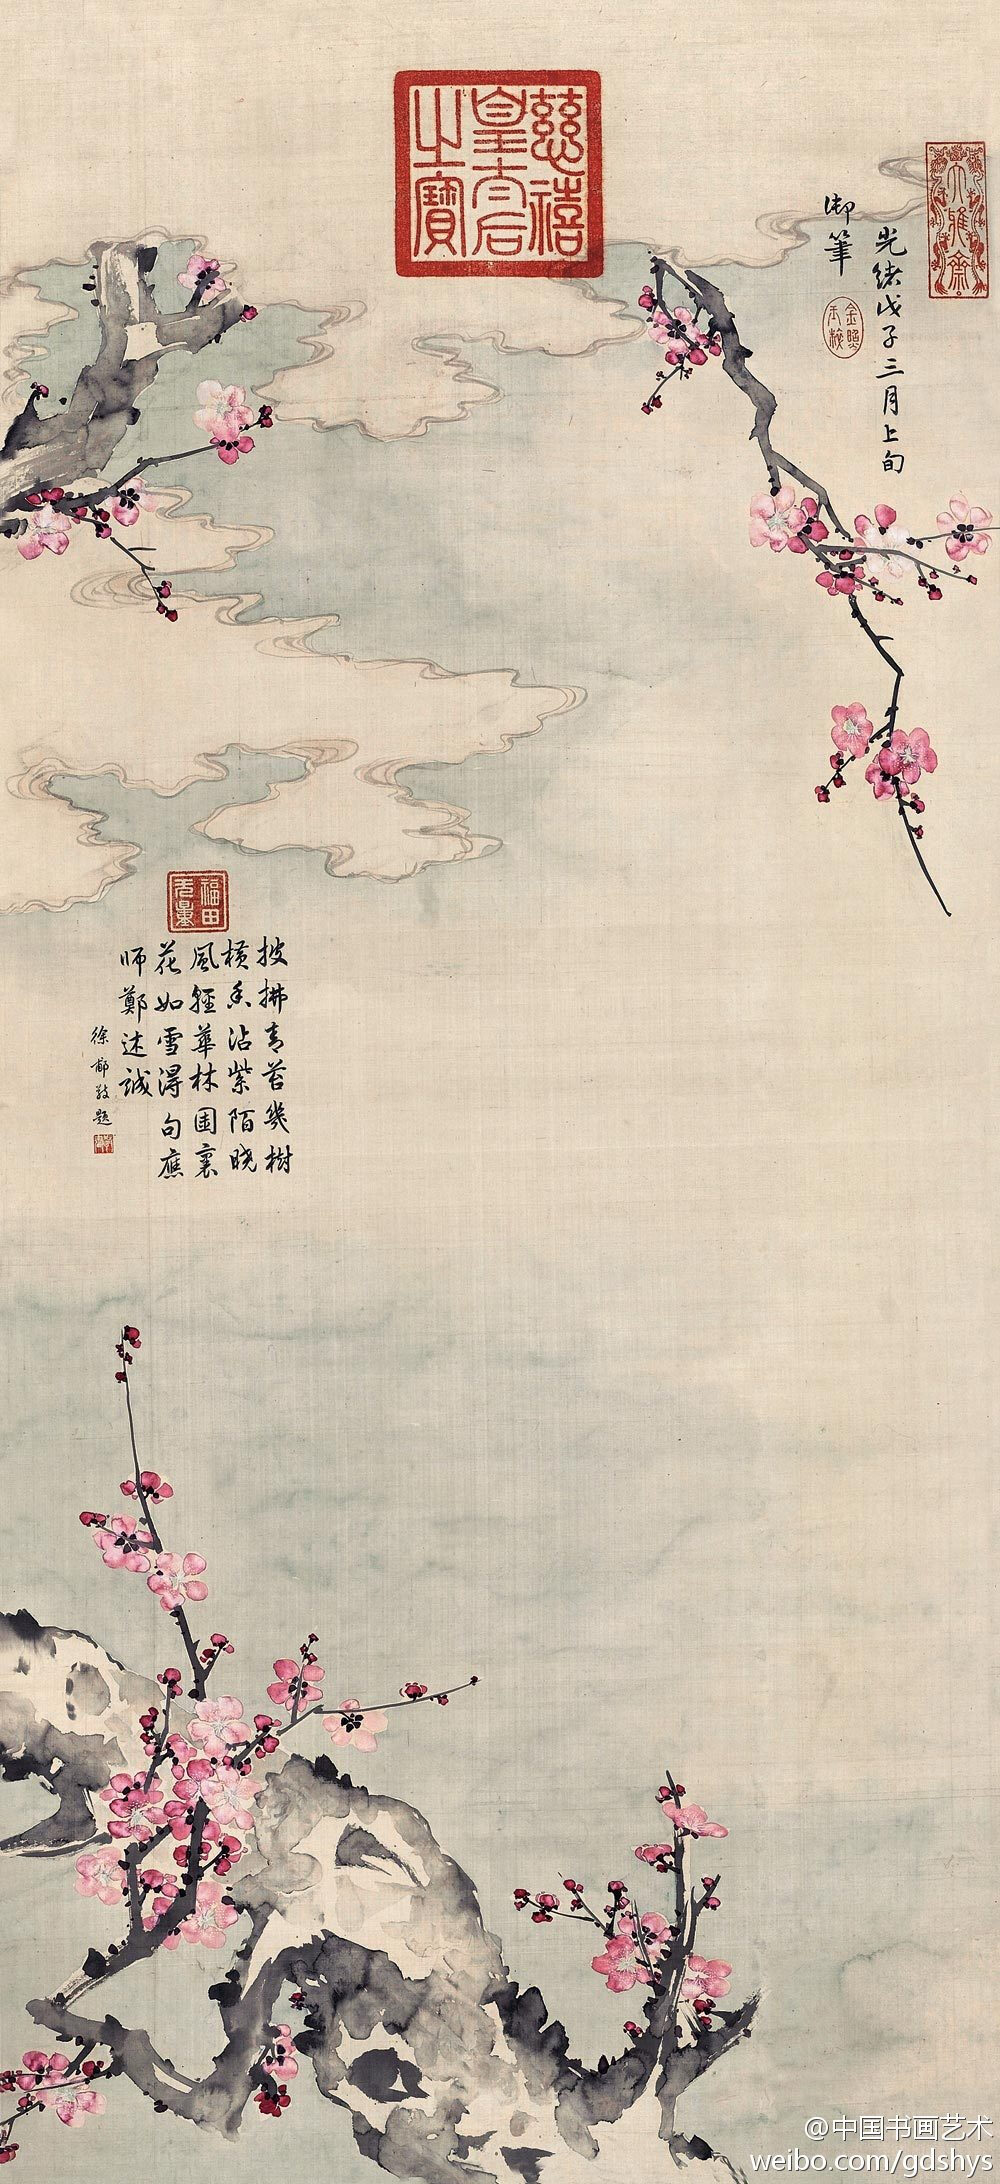 慈禧
皇太后
之寶
大雅齋
光緒戊子三月上旬
御筆
福田
無量
披拂青苔幾樹
橫香沾紫陌曉
風輕華林園裏
花如雪得句應
師鄭述誠
徐郙敬題
@中国书画艺术
weibo.com/gdshys